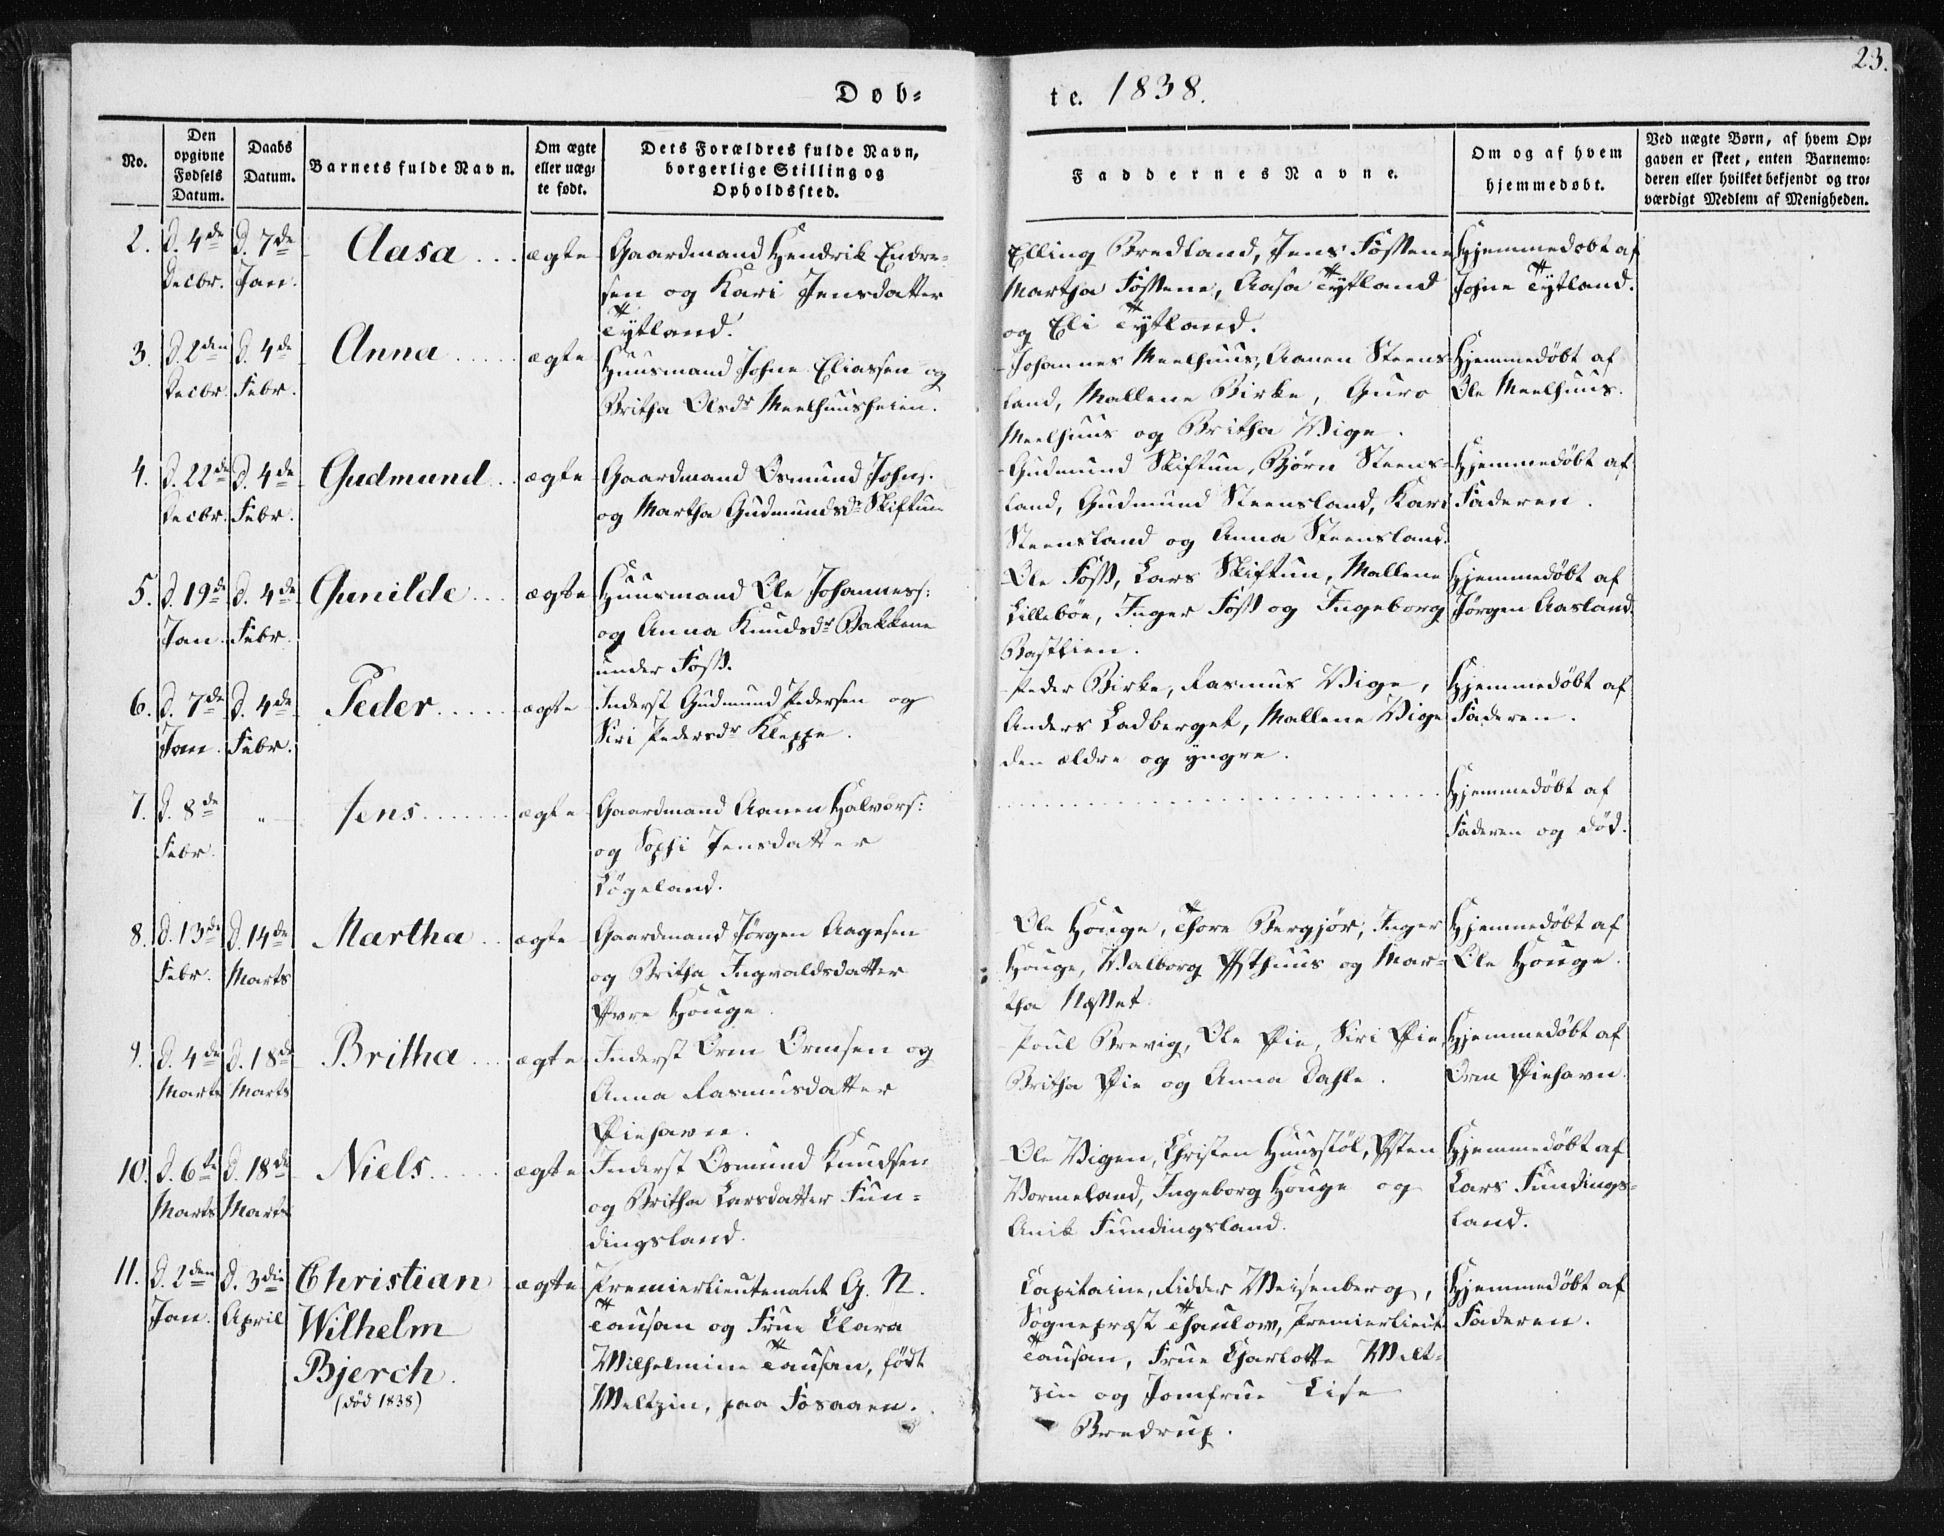 23.
Døb-
te. 1838.
No.
Den opgivne Fødsels Datum.
Daabs Datum.
Barnets fulde Navn.
Om ægte eller uæg-te født.
Dets Forældres fulde Navn, borgerlige Stilling og Opholdssted.
Faddernes Navne.
Om og af hvem hjemmedøbt.
Ved uægte Børn, af hvem Op-gaven er skeet, enten Barnemo-deren eller hvilket bekjendt og tro-værdigt Medlem af Menigheden.
2. d. 4de Decbr. d. 7de Jan. Aasa ægte
Gaardmand Hendrik Endre-
sen og Kari Jensdatter
Tytland.
Elling Bredland, Jens Fossene
Martha Fossene, Aasa Tytland
og Eli Tytland.
Hjemmedøbt af
Johne Tytland.
3. d. 2den Decbr. d. 4de Febr. Anna ægte
Huusmand Johne Eliassen og
Britha Olsdr Meelhuusheien.
Johannes Meelhuus, Aanen Steens-
land, Mallene Birke, Guro
Meelhuus og Britha Vige.
Hjemmedøbt af
Ole Meelhuus.
4. d. 22de Decbr. d. 4de Febr. Gudmund ægte
Gaardmand Osmund Johns.
og Martha Gudmundsdr Skiftun
Gudmund Skiftun, Bjørn Steens-
land, Gudmund Steensland, Kari
Steensland og Anna Steensland.
Hjemmedøbt af
Faderen.
5. d. 19de Jan. d. 4de Febr. Gunilde ægte
Huusmand Ole Johanness:
og Anna Knudsdr Bakkene
under Foss.
Ole Foss, Lars Skiftun, Mallene
Lillebøe, Inger Foss og Ingeborg
Bastlien.
Hjemmedøbt af
Jørgen Aasland.
6. d. 7de Jan. d. 4de Febr. Peder ægte
Inderst Gudmund Pedersen og
Siri Pedersdr Kleppe.
Peder Birke, Rasmus Vige,
Anders Ladberget, Mallene Vige
den ældre og yngre.
Hjemmedøbt af
Faderen.
7. d. 8de Febr. " Jens ægte
Gaardmand Aanen Halvors:
og Sophi Jensdatter
Løgeland.
Hjemmedøbt af
Faderen og død.
8. d. 13de Febr. d. 14de Marts Martha ægte
Gaardmand Jørgen Aagesen
og Britha Ingvaldsdatter
Øvre Houge.
Ole Houge, Thore Bergjør, Inger
Houge, Valborg Østhuus og Mar-
tha Næsset.
Hjemmedøbt af
Ole Houge.
9. d. 4de Marts d. 18de Marts Britha ægte
Inderst Orm Ormsen og
Anna Rasmusdatter
Øiehavn.
Poul Brevig, Ole Øie, Siri Øie,
Britha Øie og Anna Dahle.
Hjemmedøbt af
Orm Øiehavn.
10. d. 6te Marts d. 18de Marts Niels ægte
Inderst Osmund Knudsen
og Britha Larsdatter Fun-
dingsland.
Ole Vigen, Christen Huusstøl, Østen
Vormeland, Ingeborg Houge og
Anik Fundingsland.
Hjemmedøbt af
Lars Fundings-
land.
11. d. 2den Jan. d. 3die April Christian
Wilhelm
Bjerch.
(død 1838)
ægte
Premierlieutenant G. N.
Tausan og Frue Clara
Wilhelmine Tausan, født
Meltzin, paa Fosaaen.
Capitaine, Ridder Meisenberg,
Sognepræst Thaulow, Premierlieut.
Tausan, Frue Charlotte Melt-
zin og Jomfrue Lise
Bredrup.
Hjemmedøbt af
Faderen.